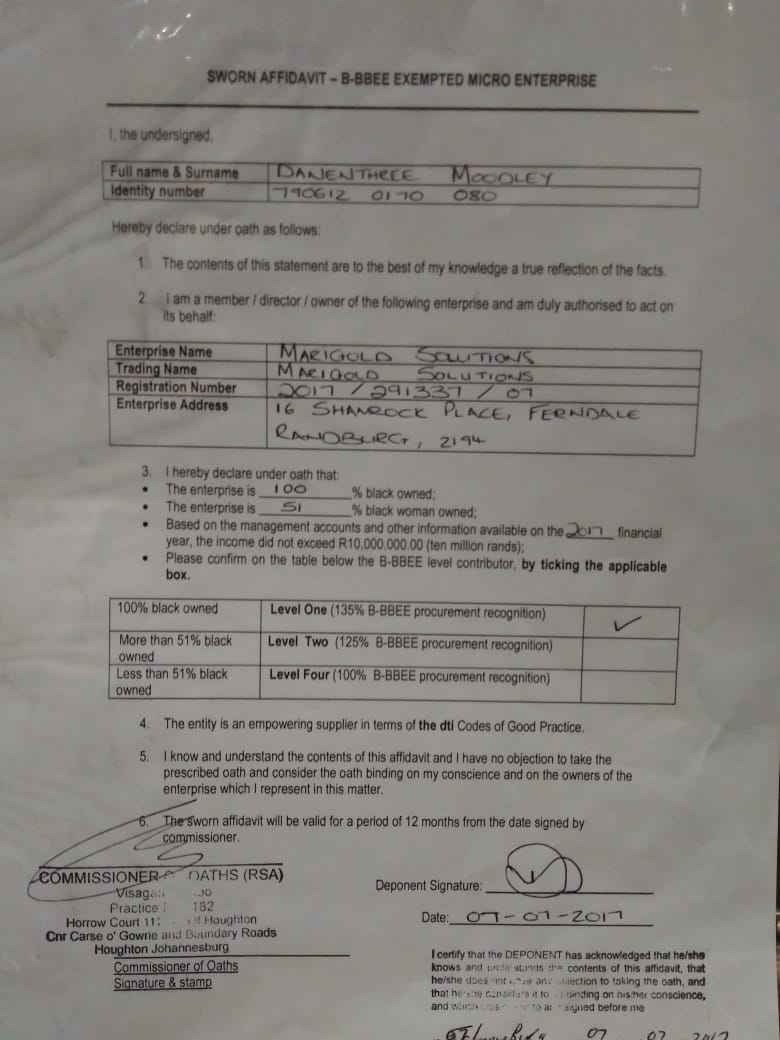 SWORN AFFIDAVIT – B-BBEE EXEMPTED MICRO ENTERPRISE
I, the undersigned,
Full name & Surname DANENTHREE MOODLEY
Identity number 790612 0170 080
Hereby declare under oath as follows:
1. The contents of this statement are to the best of my knowledge a true reflection of the facts.
2. I am a member / director / owner of the following enterprise and am duly authorised to act on
its behalf:
Enterprise Name MARIGOLD SOLUTIONS
Trading Name MARIGOLD SOLUTIONS
Registration Number 2017 / 291337 / 07
Enterprise Address 16 SHAMROCK PLACE, FERNDALE
RANDBURG, 2194
3. I hereby declare under oath that:
• The enterprise is 100 % black owned;
• The enterprise is 51 % black woman owned;
• Based on the management accounts and other information available on the 2017 financial
year, the income did not exceed R10,000,000.00 (ten million rands);
• Please confirm on the table below the B-BBEE level contributor, by ticking the applicable
box.
100% black owned Level One (135% B-BBEE procurement recognition) ✓
More than 51% black Level Two (125% B-BBEE procurement recognition)
owned
Less than 51% black Level Four (100% B-BBEE procurement recognition)
owned
4. The entity is an empowering supplier in terms of the dti Codes of Good Practice.
5. I know and understand the contents of this affidavit and I have no objection to take the
prescribed oath and consider the oath binding on my conscience and on the owners of the
enterprise which I represent in this matter.
6. The sworn affidavit will be valid for a period of 12 months from the date signed by
commissioner.
COMMISSIONER OATHS (RSA)
Practice 182
Horrow Court Houghton
Cnr Carse o' Gowrie and Boundary Roads
Houghton Johannesburg
Commissioner of Oaths
Signature & stamp
Deponent Signature:
Date: 07-07-2017
I certify that the DEPONENT has acknowledged that he/she
knows and understands the contents of this affidavit, that
he/she does not have any objection to taking the oath, and
that he/she considers it to binding on his/her conscience,
and signed before me
07 07 2017